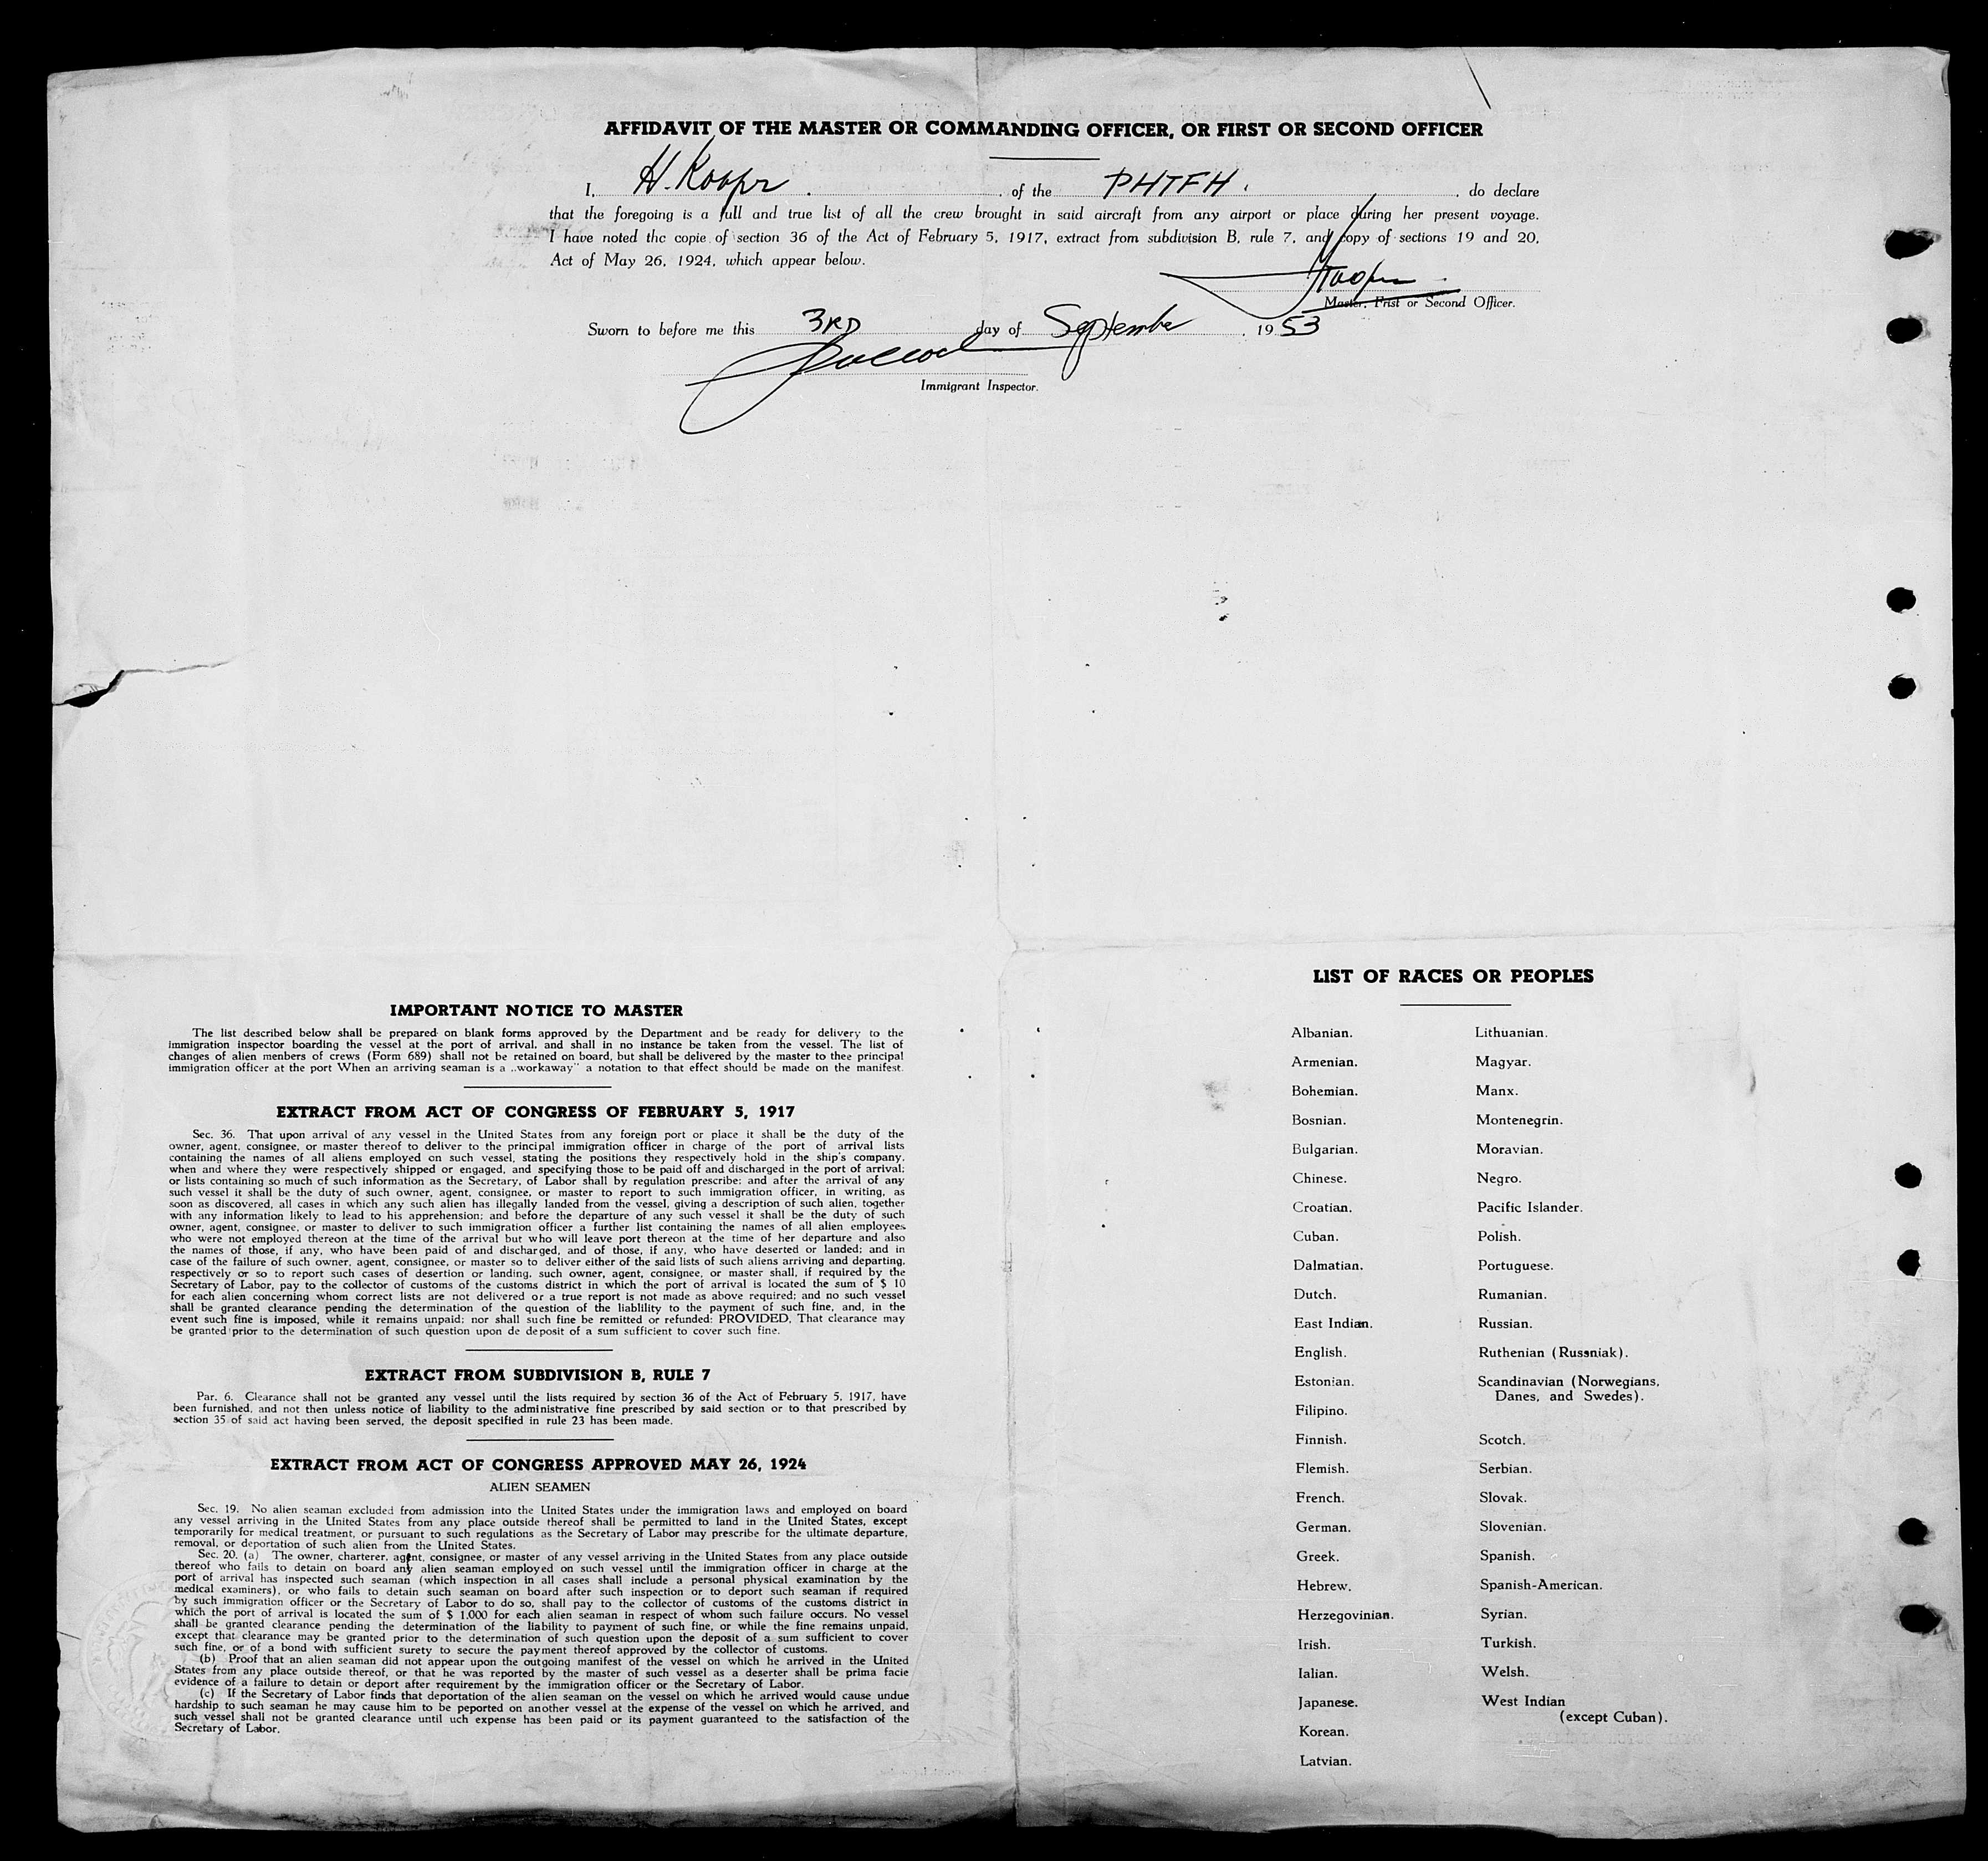 AFFIDAVIT OF THE MASTER OR COMMANDING OFFICER, OR FIRST OR SECOND OFFICER
I, H. Kooper of the PHTFH. do declare
that the foregoing is a full and true list of all the crew brought in said aircraft from any airport or place during her present voyage.
I have noted the copie of section 36 of the Act of February 5, 1917, extract from subdivision B, rule 7, and copy of sections 19 and 20,
Act of May 26, 1924, which appear below.
Master, Frist or Second Officer.
Sworn to before me this 3RD day of September 1953
Immigrant Inspector.
IMPORTANT NOTICE TO MASTER
The list described below shall be prepared on blank forms approved by the Department and be ready for delivery to the
immigration inspector boarding the vessel at the port of arrival, and shall in no instance be taken from the vessel. The list of
changes of alien menbers of crews (Form 689) shall not be retained on board, but shall be delivered by the master to thee principal
immigration officer at the port When an arriving seaman is a „workaway" a notation to that effect should be made on the manifest.
EXTRACT FROM ACT OF CONGRESS OF FEBRUARY 5, 1917
Sec. 36. That upon arrival of any vessel in the United States from any foreign port or place it shall be the duty of the
owner, agent, consignee, or master thereof to deliver to the principal immigration officer in charge of the port of arrival lists
containing the names of all aliens employed on such vessel, stating the positions they respectively hold in the ship's company,
when and where they were respectively shipped or engaged, and specifying those to be paid off and discharged in the port of arrival;
or lists containing so much of such information as the Secretary, of Labor shall by regulation prescribe; and after the arrival of any
such vessel it shall be the duty of such owner, agent, consignee, or master to report to such immigration officer, in writing, as
soon as discovered, all cases in which any such alien has illegally landed from the vessel, giving a description of such alien, together
with any information likely to lead to his apprehension; and before the departure of any such vessel it shall be the duty of such
owner, agent, consignee, or master to deliver to such immigration officer a further list containing the names of all alien employees
who were not employed thereon at the time of the arrival but who will leave port thereon at the time of her departure and also
the names of those, if any, who have been paid of and discharged, and of those, if any, who have deserted or landed; and in
case of the failure of such owner, agent, consignee, or master so to deliver either of the said lists of such aliens arriving and departing,
respectively or so to report such cases of desertion or landing, such owner, agent, consignee, or master shall, if required by the
Secretary of Labor, pay to the collector of customs of the customs district in which the port of arrival is located the sum of $ 10
for each alien concerning whom correct lists are not delivered or a true report is not made as above required; and no such vessel
shall be granted clearance pending the determination of the question of the liablility to the payment of such fine, and, in the
event such fine is imposed, while it remains unpaid; nor shall such fine be remitted or refunded: PROVIDED, That clearance may
be granted prior to the determination of such question upon de deposit of a sum sufficient to cover such fine.
EXTRACT FROM SUBDIVISION B, RULE 7
Par. 6. Clearance shall not be granted any vessel until the lists required by section 36 of the Act of February 5, 1917, have
been furnished, and not then unless notice of liability to the administrative fine prescribed by said section or to that prescribed by
section 35 of said act having been served, the deposit specified in rule 23 has been made.
EXTRACT FROM ACT OF CONGRESS APPROVED MAY 26, 1924
ALIEN SEAMEN
Sec. 19. No alien seaman excluded from admission into the United States under the immigration laws and employed on board
any vessel arriving in the United States from any place outside thereof shall be permitted to land in the United States, except
temporarily for medical treatment, or pursuant to such regulations as the Secretary of Labor may prescribe for the ultimate departure,
removal, or deportation of such alien from the United States.
Sec. 20. (a) The owner, charterer, agent, consignee, or master of any vessel arriving in the United States from any place outside
thereof who fails to detain on board any alien seaman employed on such vessel until the immigration officer in charge at the
port of arrival has inspected such seaman (which inspection in all cases shall include a personal physical examination by the
medical examiners), or who fails to detain such seaman on board after such inspection or to deport such seaman if required
by such immigration officer or the Secretary of Labor to do so, shall pay to the collector of customs of the customs district in
which the port of arrival is located the sum of $ 1.000 for each alien seaman in respect of whom such failure occurs. No vessel
shall be granted clearance pending the determination of the liability to payment of such fine, or while the fine remains unpaid,
except that clearance may be granted prior to the determination of such question upon the deposit of a sum sufficient to cover
such fine, or of a bond with sufficient surety to secure the payment thereof approved by the collector of customs.
(b) Proof that an alien seaman did not appear upon the outgoing manifest of the vessel on which he arrived in the United
States from any place outside thereof, or that he was reported by the master of such vessel as a deserter shall be prima facie
evidence of a failure to detain or deport after requirement by the immigration officer or the Secretary of Labor.
(c) If the Secretary of Labor finds that deportation of the alien seaman on the vessel on which he arrived would cause undue
hardship to such seaman he may cause him to be peported on another vessel at the expense of the vessel on which he arrived, and
such vessel shall not be granted clearance until uch expense has been paid or its payment guaranteed to the satisfaction of the
Secretary of Labor.
LIST OF RACES OR PEOPLES
Albanian.
Armenian.
Bohemian.
Bosnian.
Bulgarian.
Chinese.
Croatian.
Cuban.
Dalmatian.
Dutch.
East Indian.
English.
Estonian.
Filipino.
Finnish.
Flemish.
French.
German.
Greek.
Hebrew.
Herzegovinian.
Irish.
Ialian.
Japanese.
Korean.
Latvian.
Lithuanian.
Magyar.
Manx.
Montenegrin.
Moravian.
Negro.
Pacific Islander.
Polish.
Portuguese.
Rumanian.
Russian.
Ruthenian (Russniak).
Scandinavian (Norwegians,
Danes, and Swedes).
Scotch.
Serbian.
Slovak.
Slovenian.
Spanish.
Spanish-American.
Syrian.
Turkish.
Welsh.
West Indian
(except Cuban).